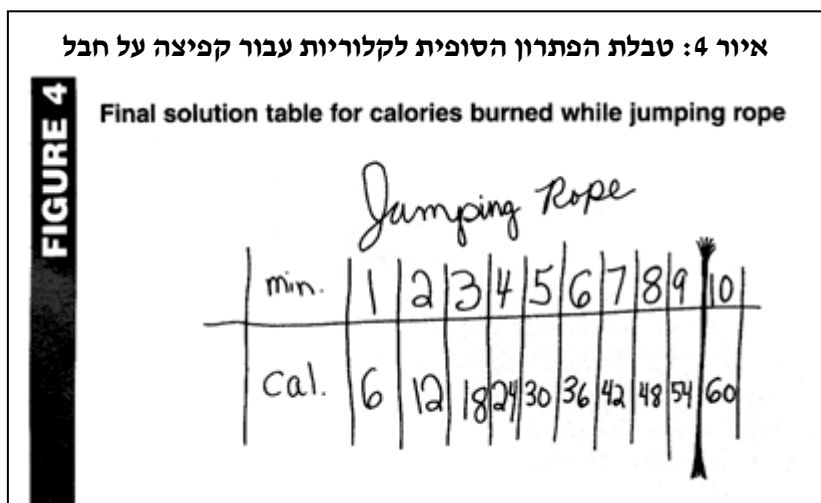 איור 4: טבלת הפתרון הסופית לקלוריות עבור קפיצה על חבל
FIGURE 4
Final solution table for calories burned while jumping rope
Jumping Rope
min. 1 2 3 4 5 6 7 8 9 10
Cal. 6 12 18 24 30 36 42 48 54 60